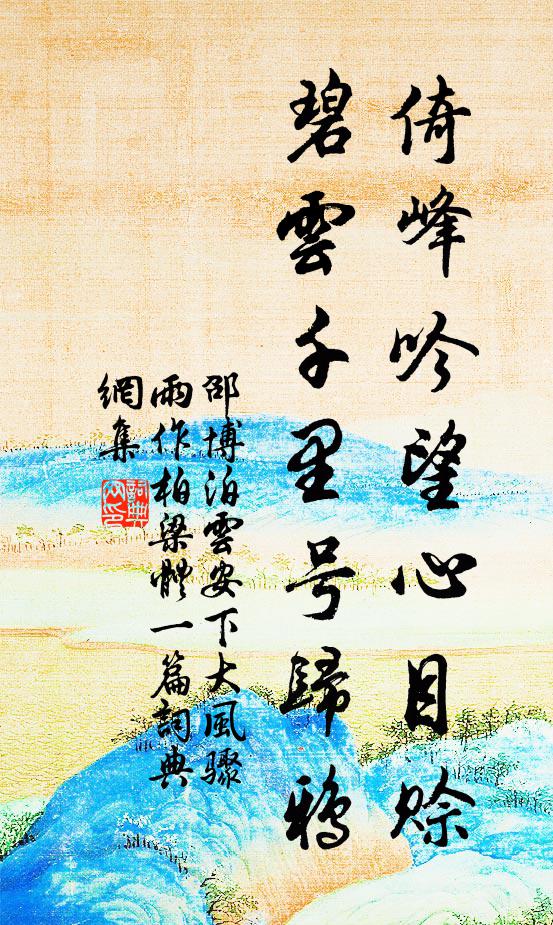 倚峰吟望心目賒
碧雲千里号歸鴉
邵博泊雲安下大風驟
雨作柏梁體一篇詞典
網集